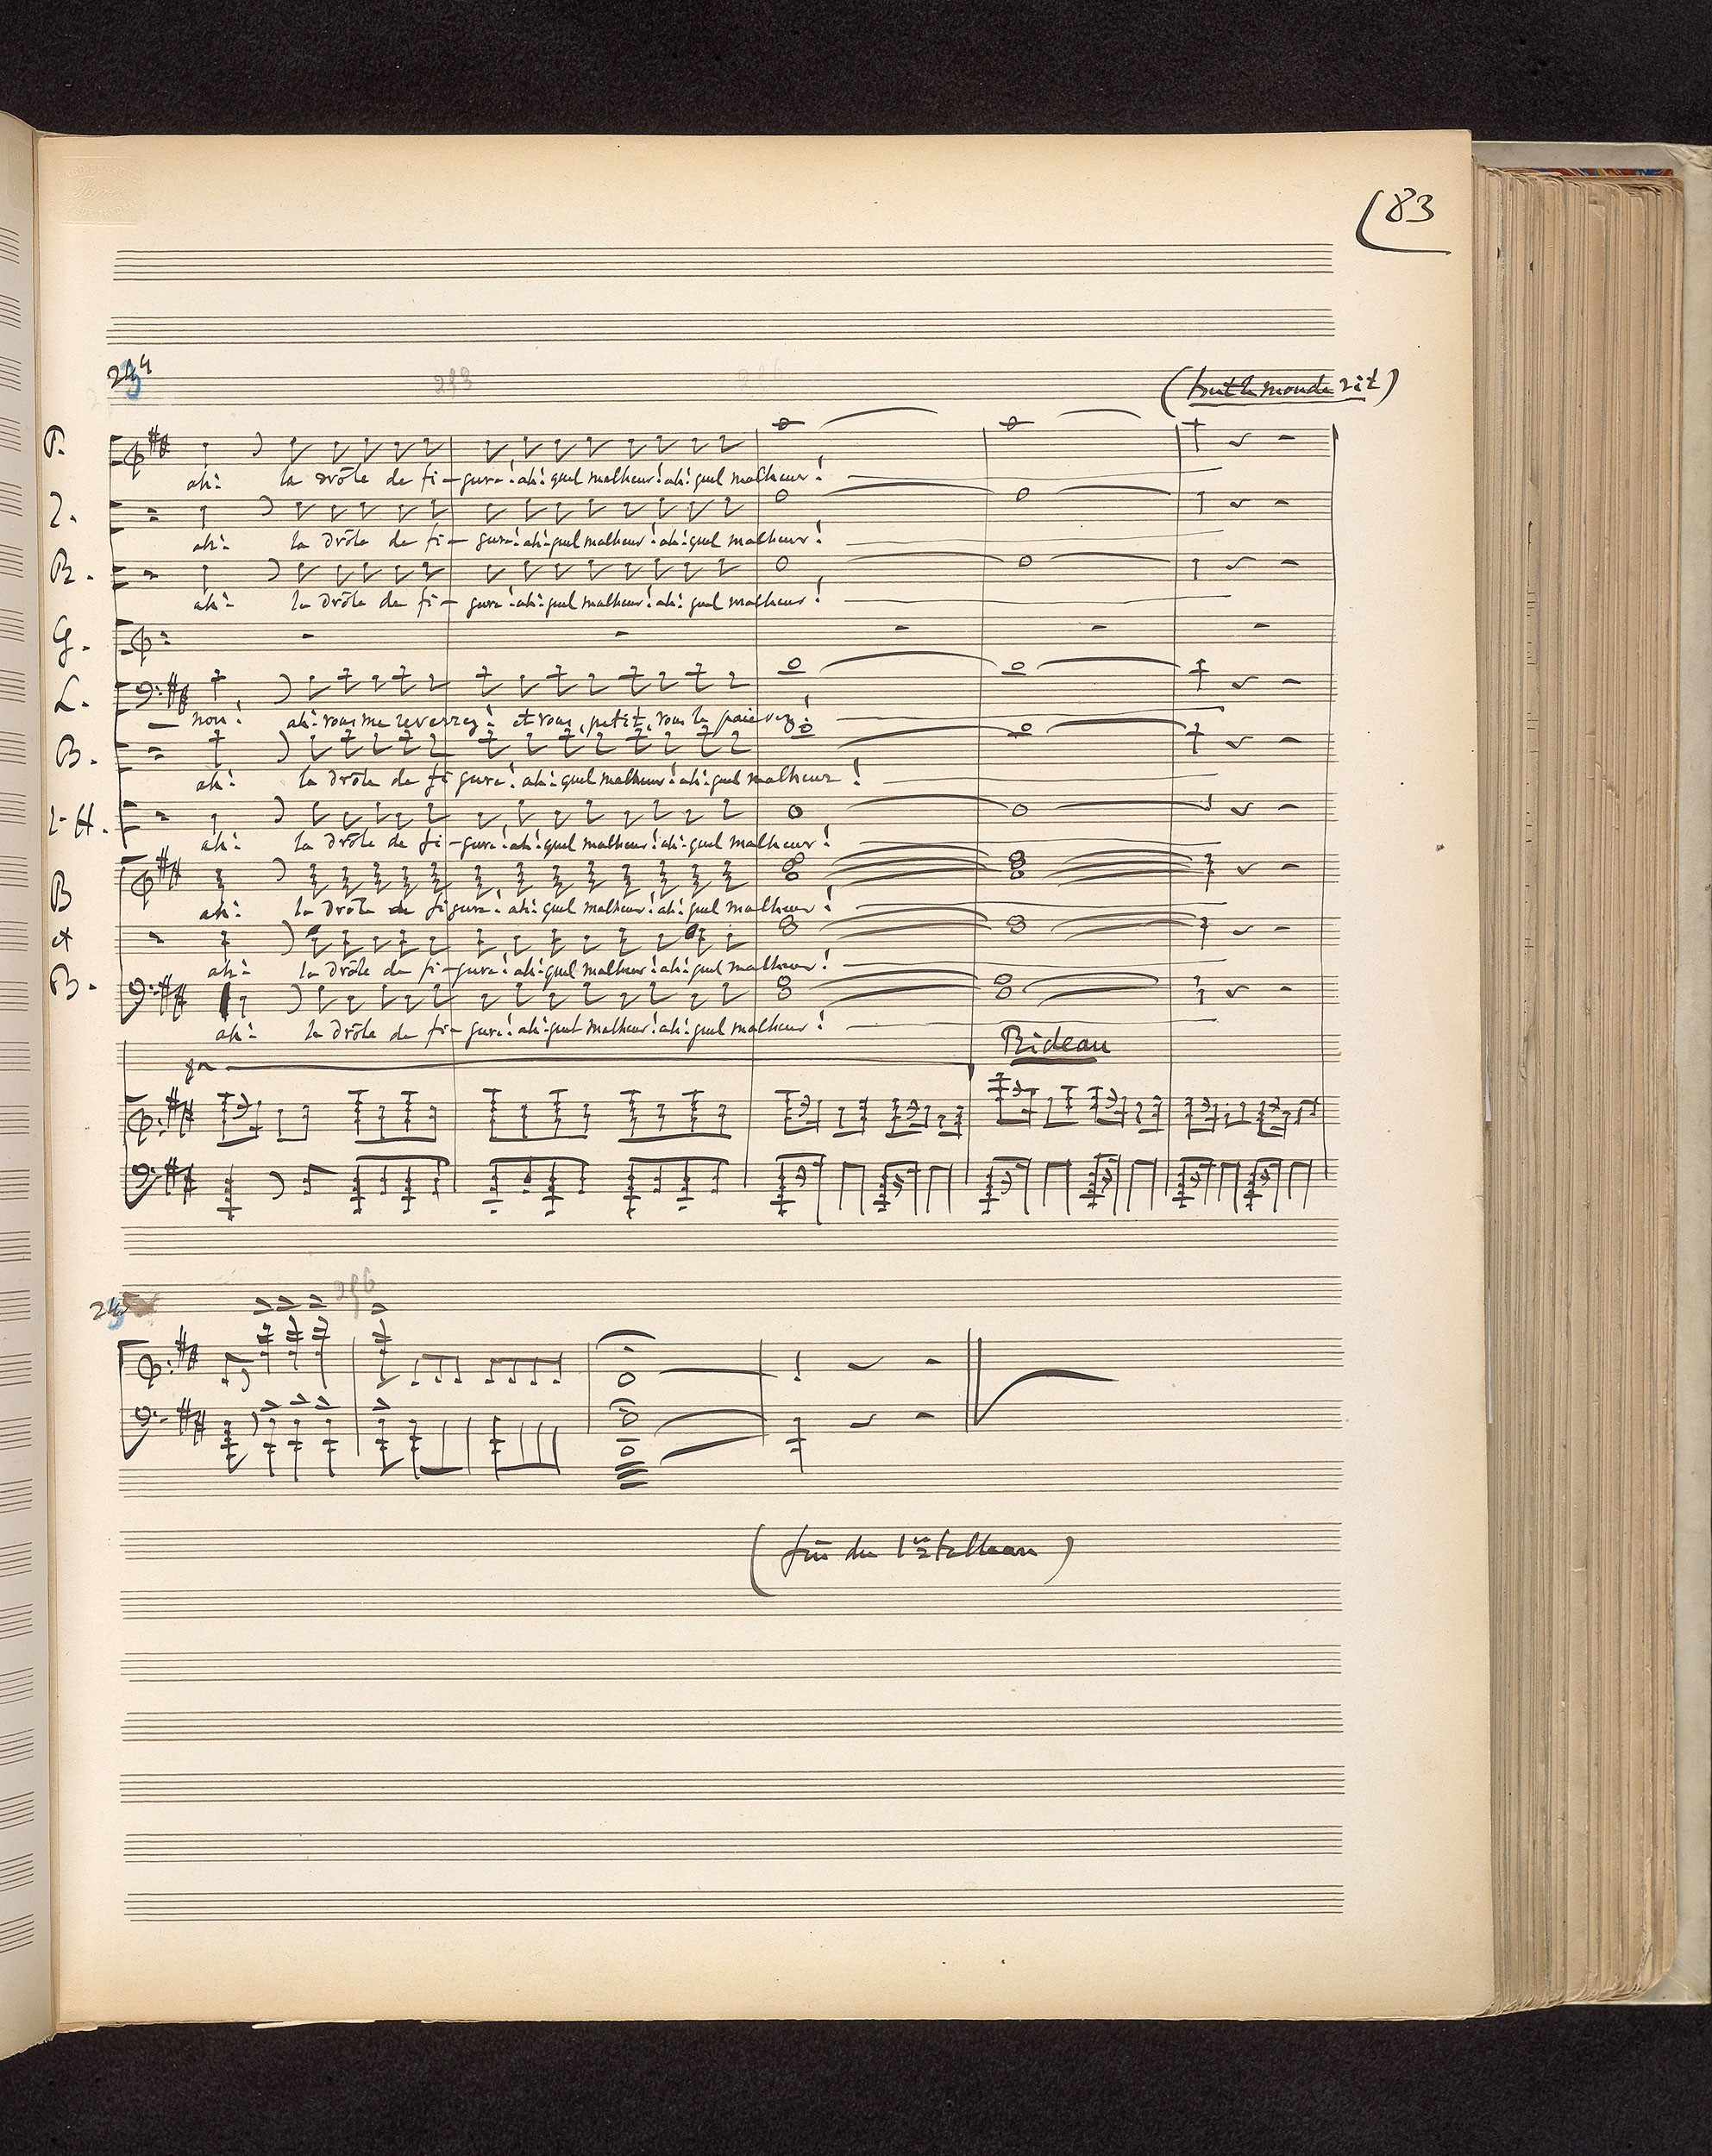 83
244
293
(tout le monde rit)
P.
ah! la drôle de fi-gure! ah! quel malheur! ah! quel malheur!
Z.
ah! la drôle de fi-gure! ah! quel malheur! ah! quel malheur!
R.
ah! la drôle de fi-gure! ah! quel malheur! ah! quel malheur!
G.
L.
non! ah! vous me reverrez! et vous, petit, vous le paierez!
B.
ah! la drôle de fi gure! ah! quel malheur! ah! quel malheur!
L-H.
ah! la drôle de fi-gure! ah! quel malheur! ah! quel malheur!
B
ah! la drôle de figure! ah! quel malheur! ah! quel malheur!
et
ah! la drôle de fi-gure! ah! quel malheur! ah! quel malheur!
B.
ah! la drôle de fi-gure! ah! quel malheur! ah! quel malheur!
Rideau
8a
296
(fin du 1er tableau)